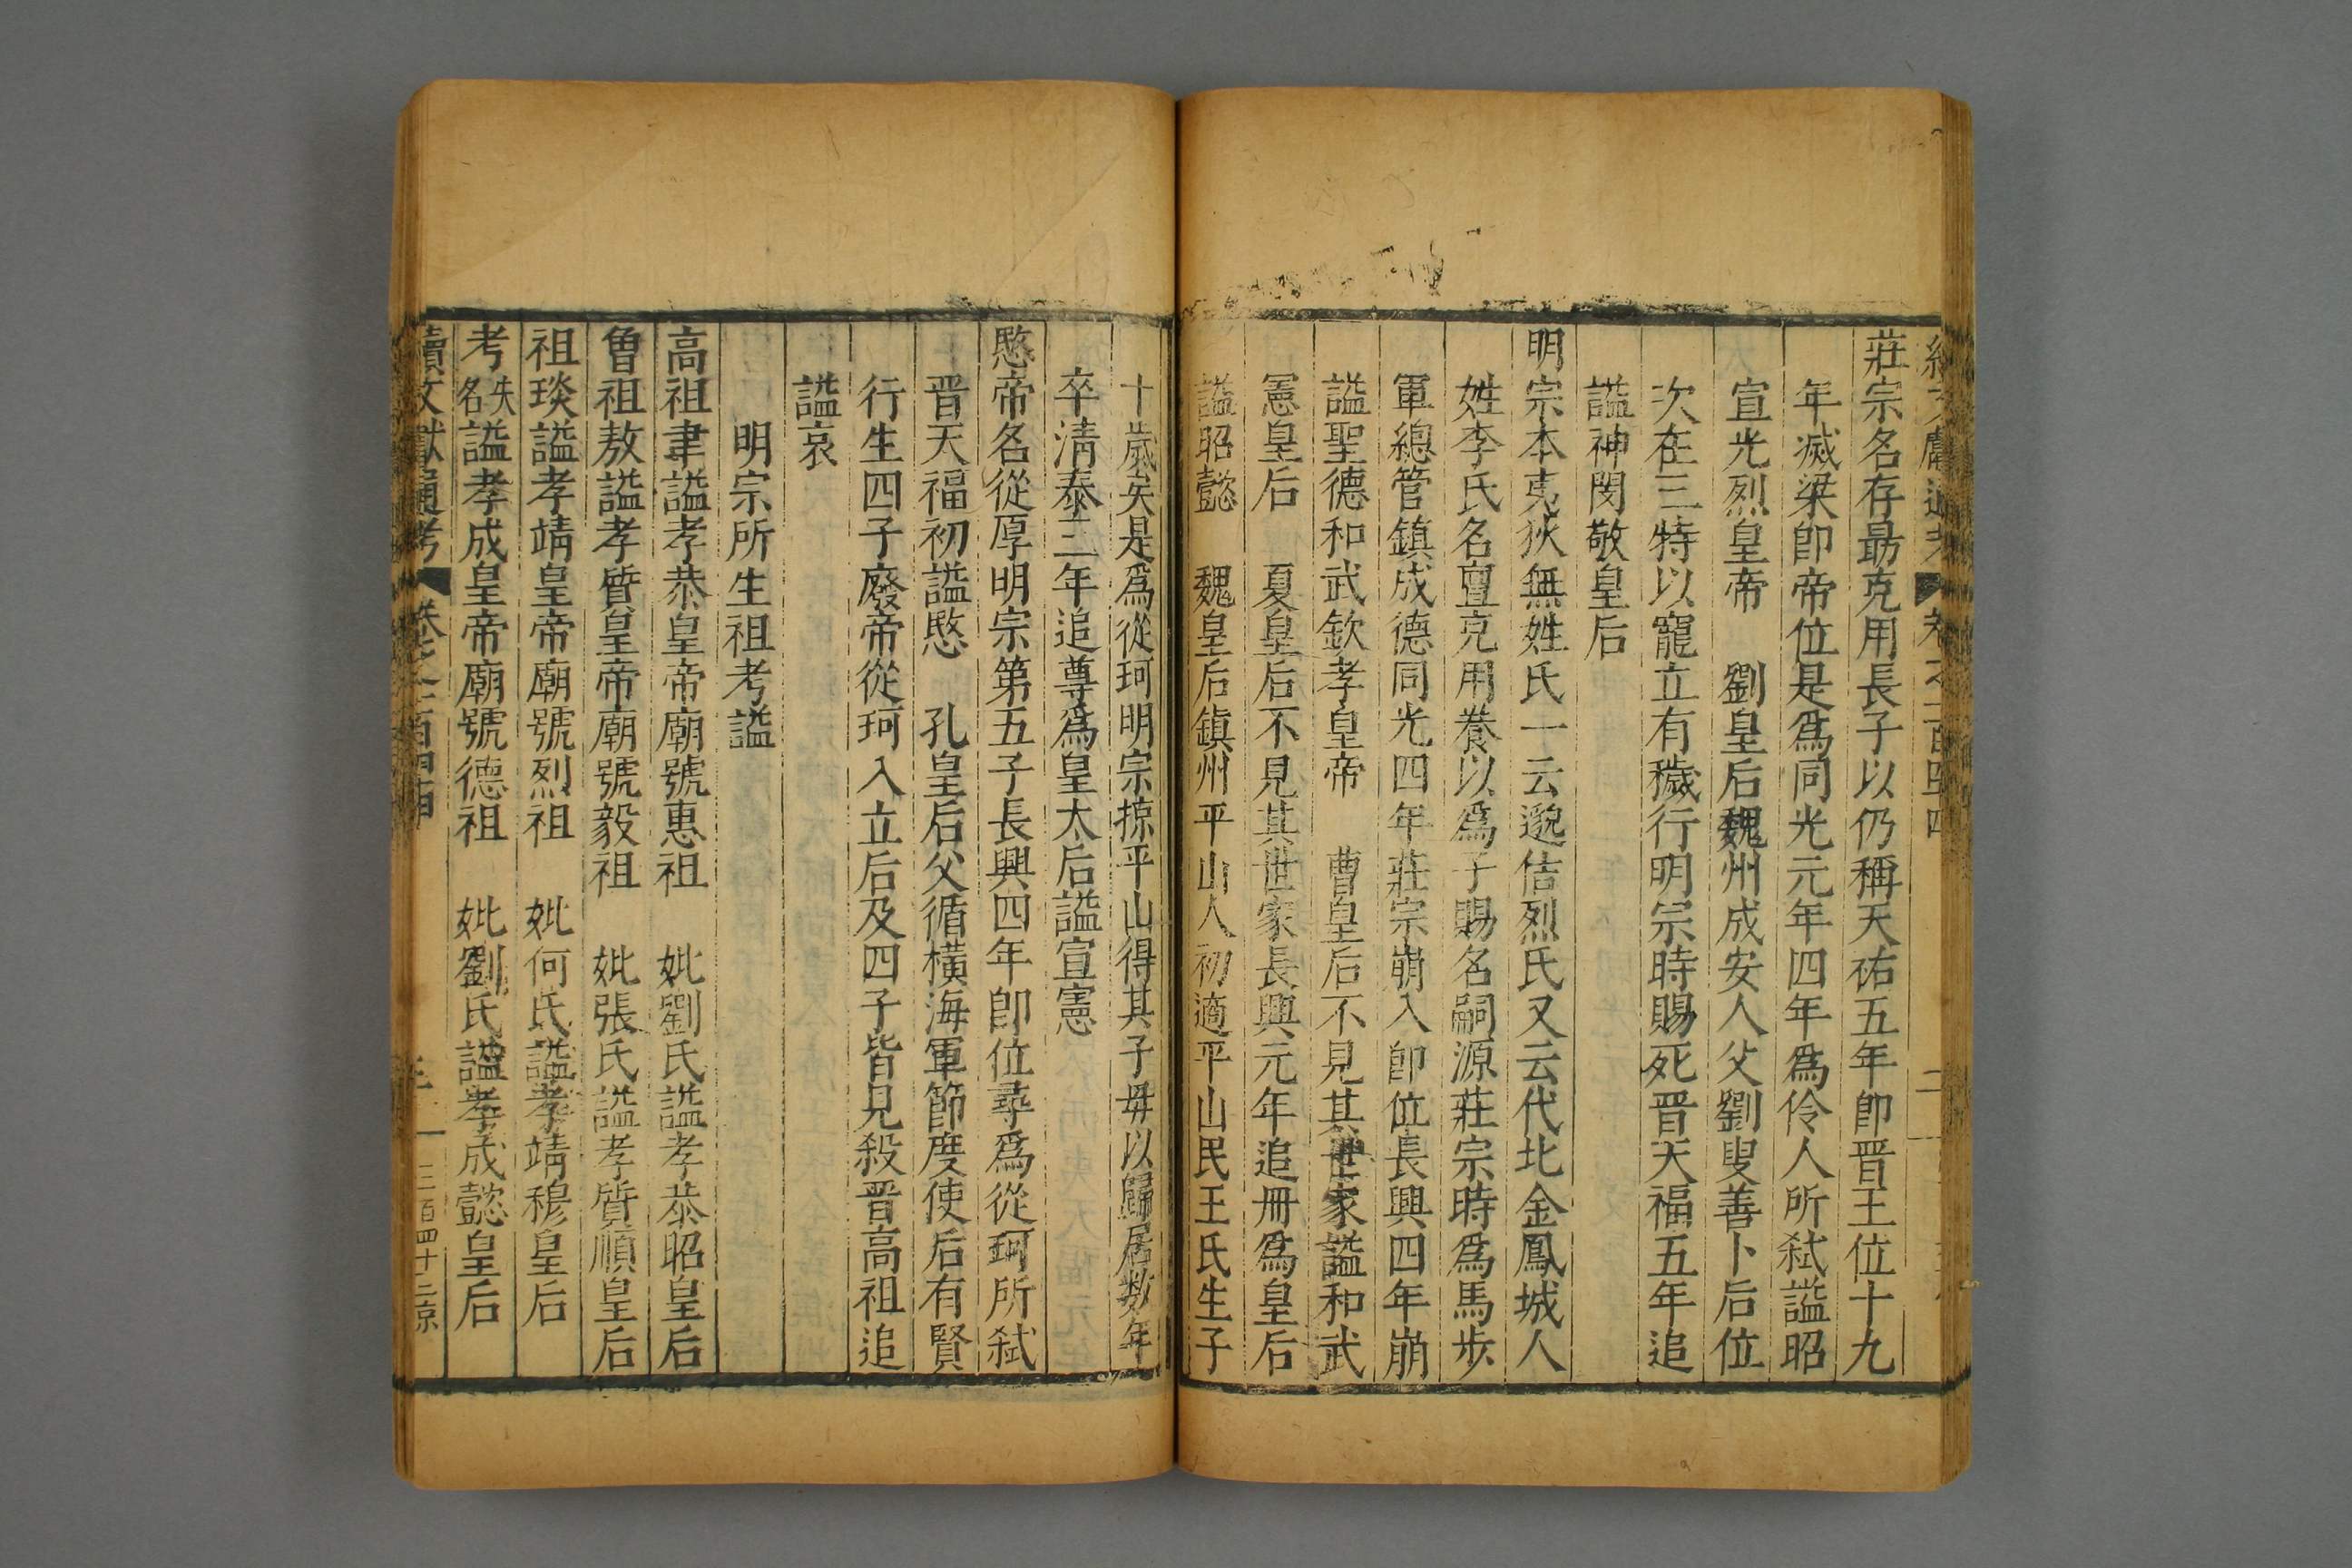 續文獻通考 卷之一百四十四 二
莊宗名存最克用長子以仍稱天祐五年即晋王位十九
年滅梁即帝位是爲同光元年四年爲伶人所弒謚昭
宣光烈皇帝 劉皇后魏州成安人父劉叟善卜后位
次在三特以寵立有穢行明宗時賜死晋天福五年追
謚神閔敬皇后
明宗本夷狄無姓氏一云邈佶烈氏又云代北金鳳城人
姓李氏名亶克用養以爲子賜名嗣源莊宗時爲馬步
軍總管鎮成德同光四年莊宗崩入即位長興四年崩
謚聖德和武欽孝皇帝 曹皇后不見其世家謚和武
憲皇后 夏皇后不見其世家長興元年追冊爲皇后
謚昭懿 魏皇后鎮州平山人初適平山民王氏生子
十歲矣是爲從珂明宗掠平山得其子毋以歸居数年
卒清泰三年追尊爲皇太后謚宣憲
愍帝名從厚明宗第五子長興四年即位尋爲從珂所弒
晋天福初謚愍 孔皇后父循橫海軍節度使后有賢
行生四子廢帝從珂入立后及四子皆見殺晋高祖追
謚哀
明宗所生祖考謚
高祖聿謚孝恭皇帝廟號惠祖 妣劉氏謚孝恭昭皇后
曾祖敖謚孝質皇帝廟號毅祖 妣張氏謚孝質順皇后
祖琰謚孝靖皇帝廟號烈祖 妣何氏謚孝靖穆皇后
考失名謚孝成皇帝廟號德祖 妣劉氏謚孝成懿皇后
續文獻通考 卷之一百四十 三 三百四十三京